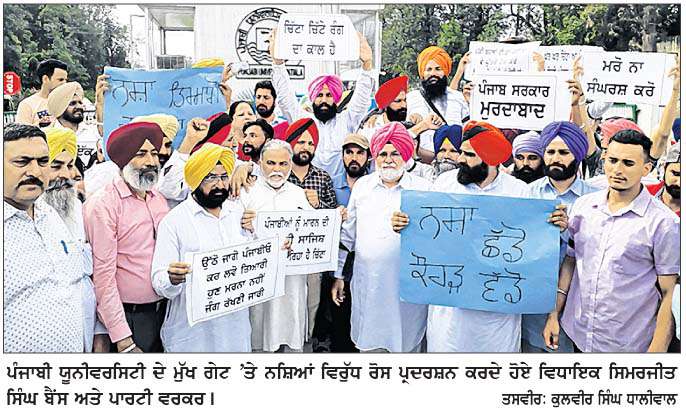 ਚਿੱਟਾ ਚਿੱਟੇ ਰੰਗ
ਦਾ ਕਾਲ ਹੈ
PUNJABI
ਨਸ਼ਾ
ਪੰਜਾਬ ਸਰਕਾਰ
ਮੁਰਦਾਬਾਦ
ਮਰੋ ਨਾ
ਸੰਘਰਸ਼ ਕਰੋ
STOP
ਪੰਜਾਬੀਆਂ ਨੂੰ ਮਾਰਨ ਦੀ
ਸਾਜਿਸ਼
ਚਿੱਟਾ
ਉੱਠੋ ਜਾਗੋ ਪੰਜਾਬੀਓ
ਕਰ ਲਵੋ ਤਿਆਰੀ
ਹੁਣ ਮਰਨਾ ਨਹੀਂ
ਜੰਗ ਰੱਖਣੀ ਜਾਰੀ
ਨਸ਼ਾ ਛੱਡੋ
ਕੋਹੜ ਵੱਡੋ
ਪੰਜਾਬੀ ਯੂਨੀਵਰਸਿਟੀ ਦੇ ਮੁੱਖ ਗੇਟ 'ਤੇ ਨਸ਼ਿਆਂ ਵਿਰੁੱਧ ਰੋਸ ਪ੍ਰਦਰਸ਼ਨ ਕਰਦੇ ਹੋਏ ਵਿਧਾਇਕ ਸਿਮਰਜੀਤ
ਸਿੰਘ ਬੈਂਸ ਅਤੇ ਪਾਰਟੀ ਵਰਕਰ।
ਤਸਵੀਰ: ਕੁਲਵੀਰ ਸਿੰਘ ਧਾਲੀਵਾਲ